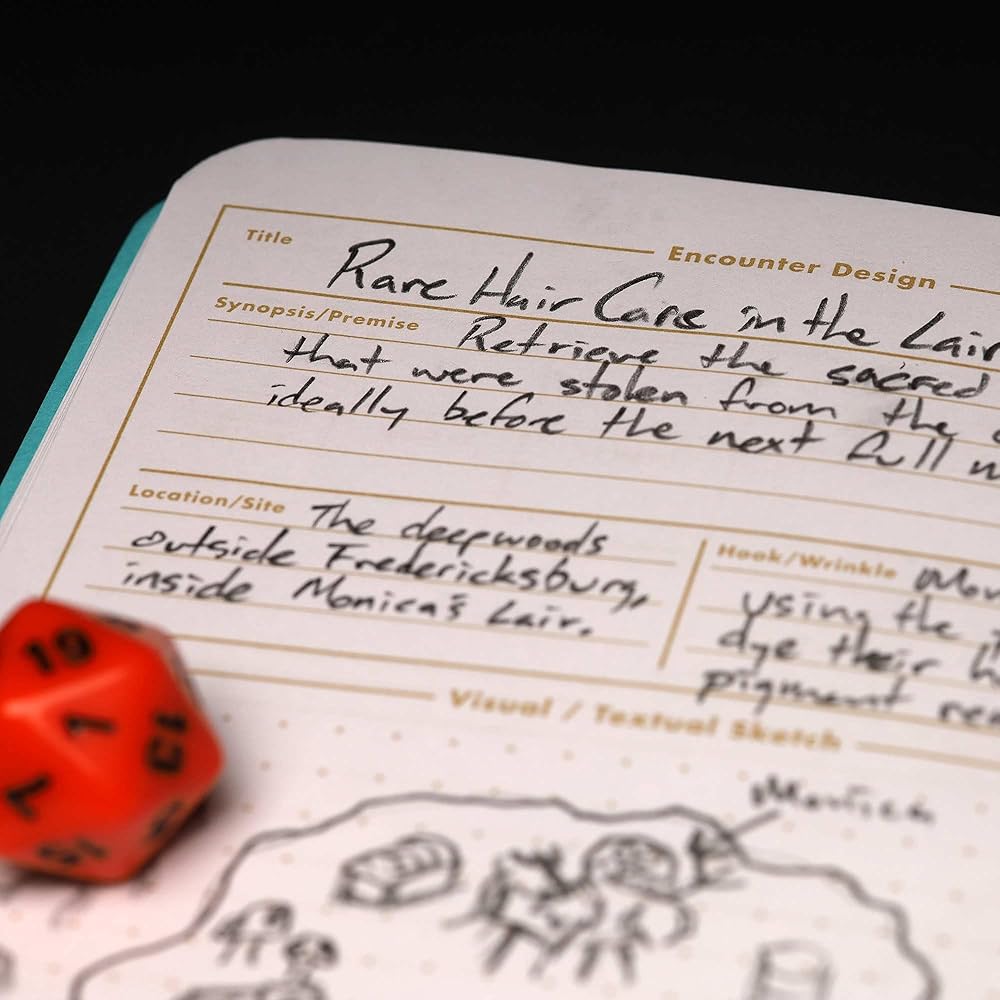 Encounter Design
Title Rare Hair Care in the Lair
Synopsis/Premise Retrieve the sacred
that were stolen from the
ideally before the next full
Location/Site The deepwoods
outside Fredericksburg,
inside Monica's Lair.
Hook/Wrinkle
using the
dye their
pigment
Visual / Textual Sketch
Monica
19
1
13
7